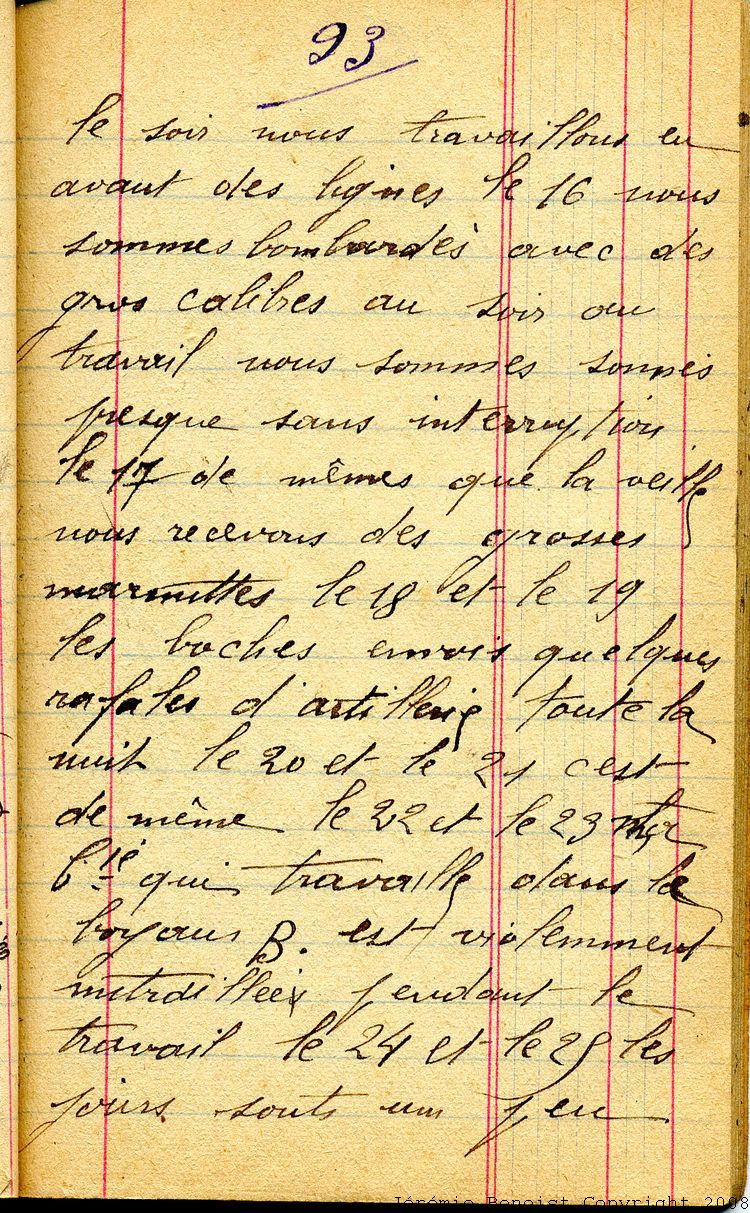 93
le soir nous travaillons en
avant des lignes le 16 nous
sommes bombardés avec des
gros calibres au soir au
travail nous sommes sonnés
presque sans interruption
le 17 de mêmes que la veille
nous recevons des grosses
marmittes le 18 et le 19
les boches envois quelques
rafales d'artillerie toute la
nuit le 20 et le 21 cest
de même le 22 et le 23
Cie qui travaille dans le
boyaus B. est violemment
mitraillée pendant le
travail le 24 et le 25 les
jours sonts um peu
Jérémie Benoist Copyright 2008